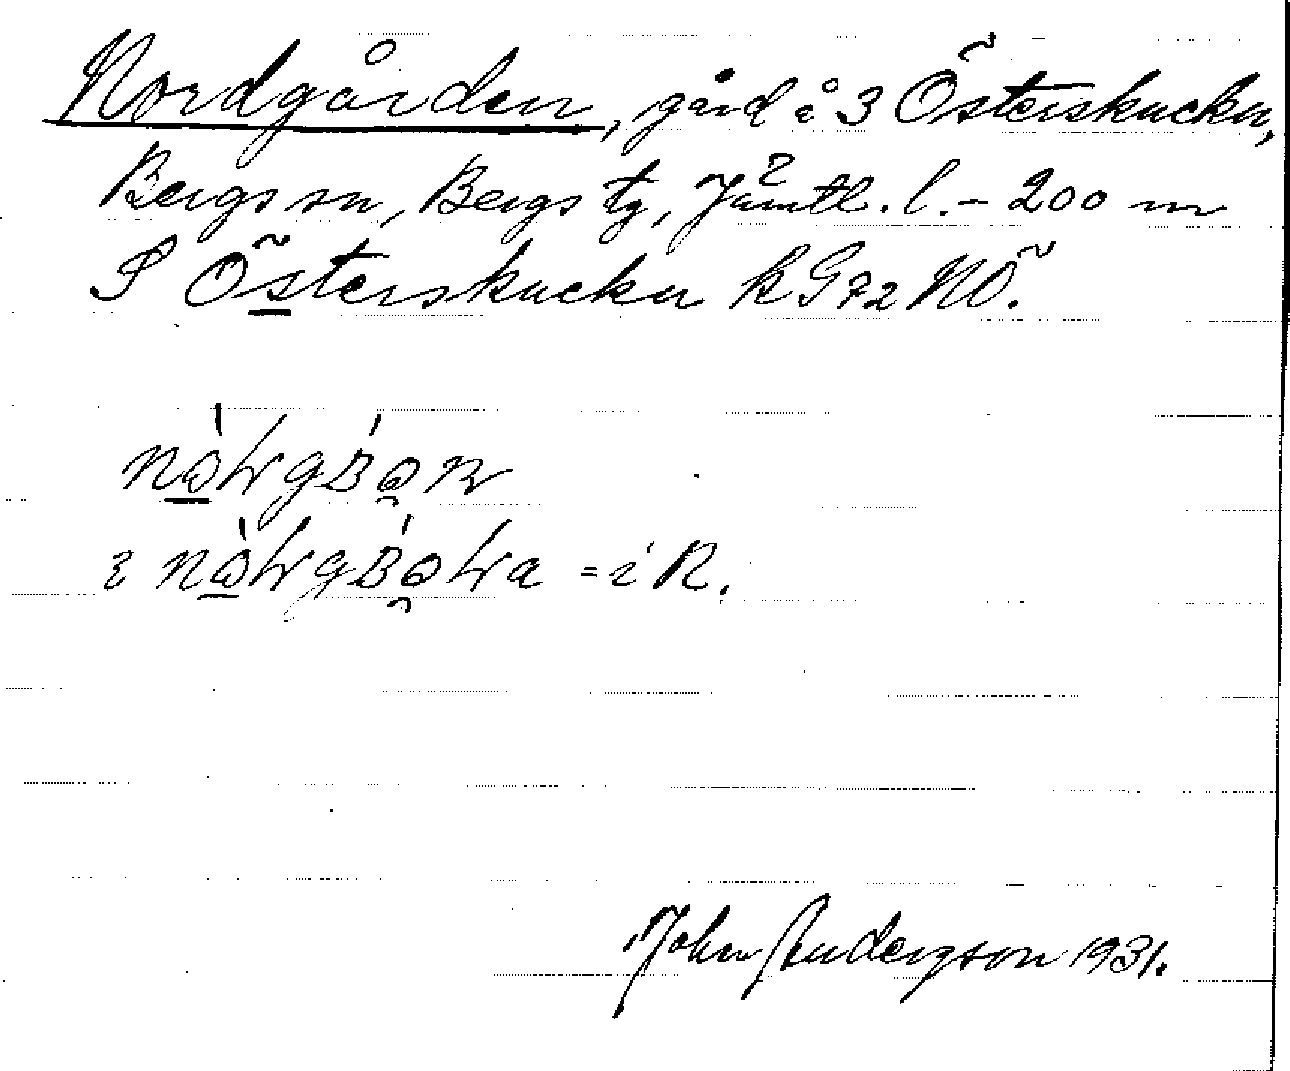 Nordgården, gård å 3 Österskucku,
Bergs sn, Bergs tg, Jämtl. l. - 200 m
S Österskucku k G72 NÖ.
= i R.
John Andersson 1931.